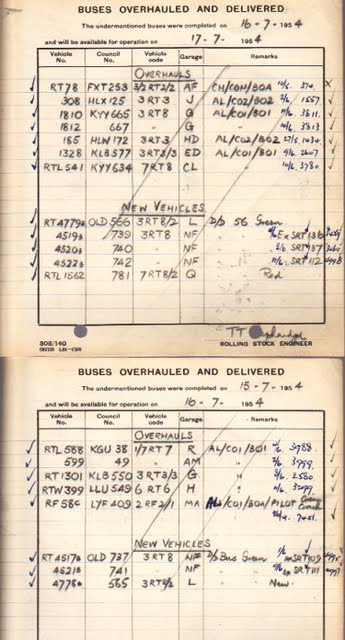 BUSES OVERHAULED AND DELIVERED
The undermentioned buses were completed on 16-7-1954
and will be available for operation on 17-7-1954
Vehicle No. Council No. Vehicle code Garage Remarks
OVERHAULS
RT78 FXT253 3/2RT2/2 AF CH/COH/BOA
308 HLX125 3RT3 J AL/CO2/BO2 2/6 1557
1810 KYY665 3RT8 Q AL/CO1/BO1 11/6 3811
1812 667 " G " 10/6 3813
185 HLW172 3RT3 HD AL/CO2/BO2 27/5 1034
1328 KLB577 3RT3/3 ED AL/CO1/BO1 9/6 2607
RTL541 KYY634 7RT8 CL " 10/6 3780
NEW VEHICLES
RT4779 OLD566 3RT8/2 L D/D 56 Green
4519 739 3RT8 NF Ex SRT136
4520 740 NF SRT137
4522 742 NF SRT112
RTL1562 781 7RT8/2 Q Red
308/140
ROLLING STOCK ENGINEER
BUSES OVERHAULED AND DELIVERED
The undermentioned buses were completed on 15-7-1954
and will be available for operation on 16-7-1954
Vehicle No. Council No. Vehicle code Garage Remarks
OVERHAULS
RTL588 KGU38 1/7RT7 R AL/CO1/BO1 3988
599 49 " AM " 3999
RT1301 KLB550 3RT3/3 G " 2580
RTW399 LLU549 6RT6 H " 3099
RF580 LYF409 2RF2/1 MA CO1/BOA/PILOT Green Coach
NEW VEHICLES
RT4517 OLD737 3RT8 NF D/D Bus Green ex SRT109
4621 741 " NF " ex SRT111
4778 565 3RT8/2 L New